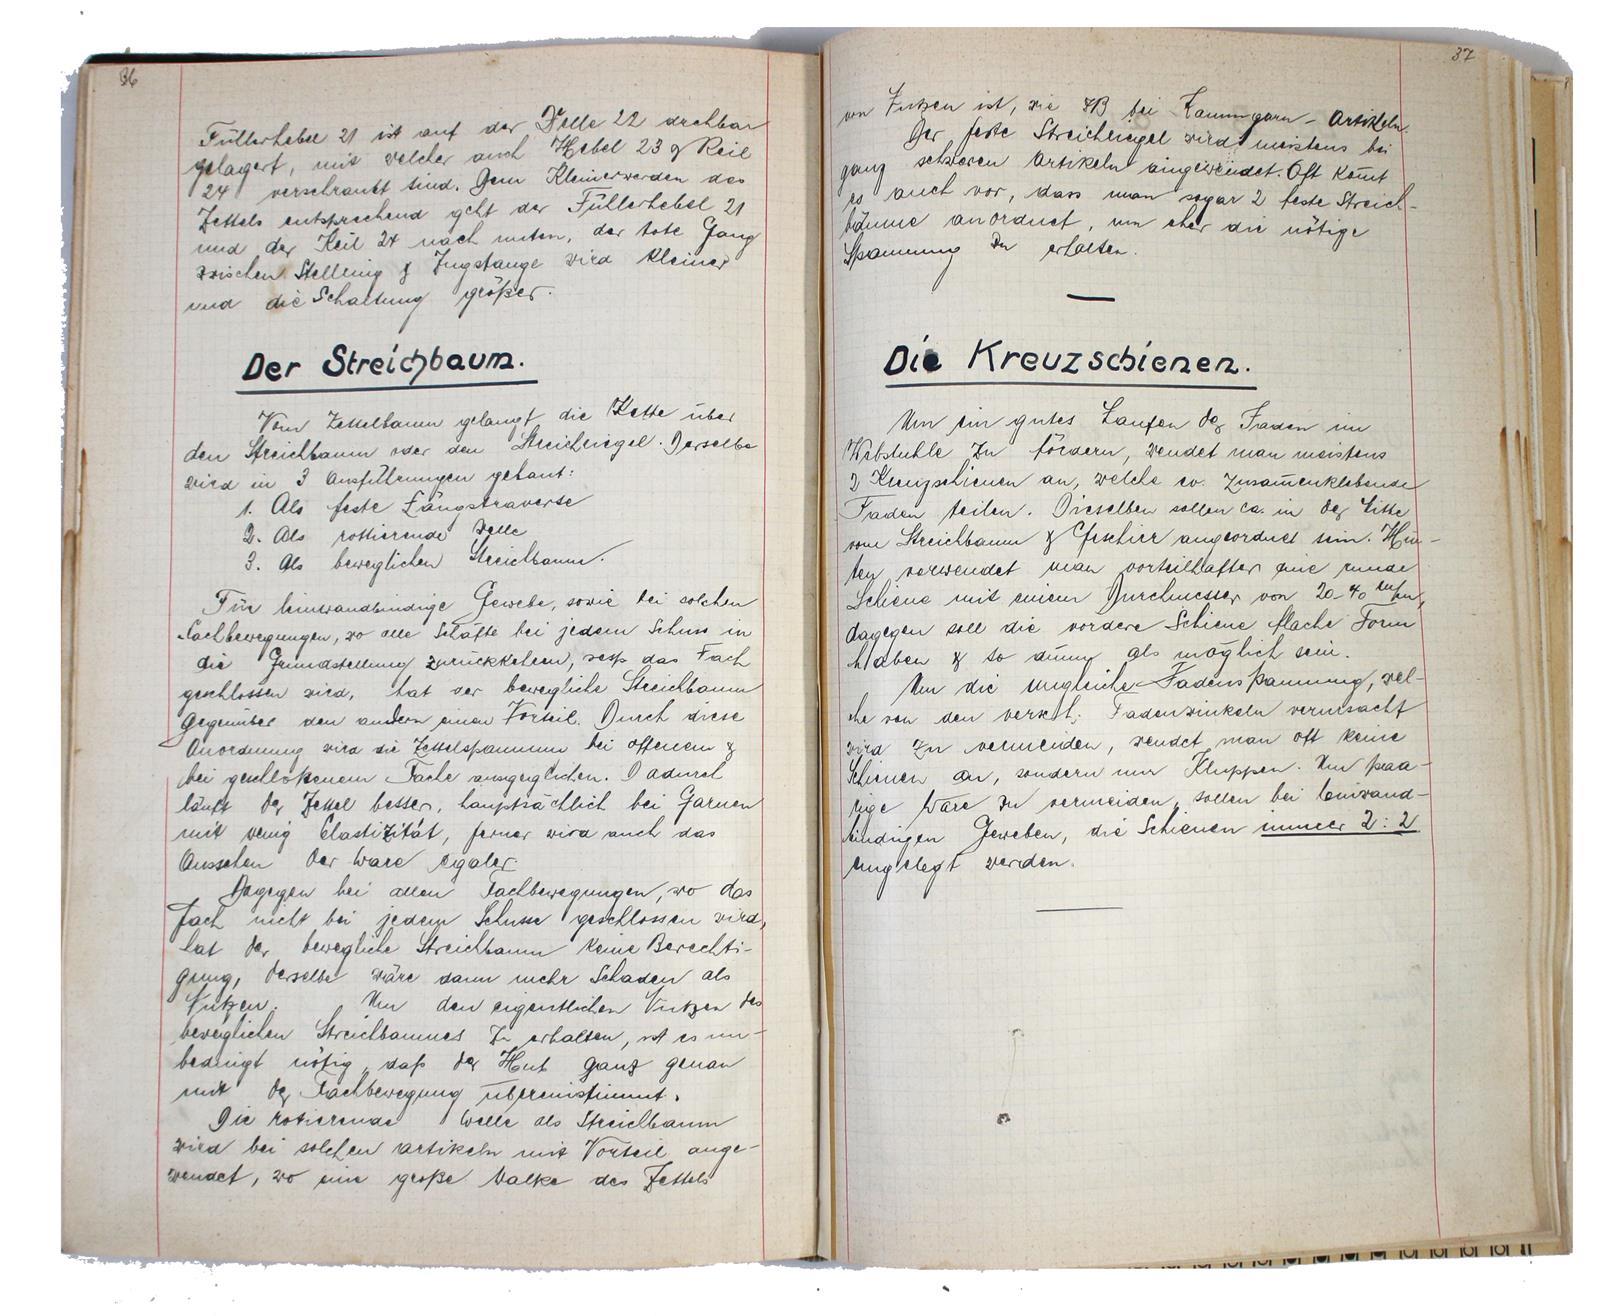 36
Füllerhebel 21 ist auf der Welle 22 drehbar
gelagert, mit welcher auch Hebel 23 & Keil
24 verschraubt sind. Dem Kleinerwerden des
Zettels entsprechend geht der Füllerhebel 21
und der Keil 24 nach unten, der tote Gang
zwischen Stellring & Zugstange wird kleiner
und die Schaltung größer.
Der Streichbaum.
Vom Zettelbaum gelangt die Kette über
den Streichbaum oder den Streichriegel. Derselbe
wird in 3 Ausführungen gebaut:
1. Als feste Längstraverse
2. Als rottierende Welle
3. Als beweglichen Streichbaum.
Für leinwandbindige Gewebe, sowie bei solchen
Fachbewegungen, wo alle Schäfte bei jedem Schuss in
die Grundstellung zurückkehren, resp das Fach
geschlossen wird, hat der bewegliche Streichbaum
gegenüber den andern einen Vorteil. Durch diese
Anordnung wird die Zettelspannung bei offenem &
bei geschloßenem Fache ausgeglichen. Dadurch
läuft der Zettel besser, hauptsächlich bei Garnen
mit wenig Elastizität, ferner wird auch das
Aussehen der Ware egaler.
Dagegen bei allen Fachbewegungen, wo das
Fach nicht bei jedem Schuss geschlossen wird,
hat der bewegliche Streichbaum keine Berechti-
gung, derselbe wäre dann mehr Schaden als
Nutzen. Um den eigentlichen Nutzen des
beweglichen Streichbaumes zu erhalten, ist es un-
bedingt nötig, daß der Hub ganz genau
mit der Fachbewegung übereinstimmt.
Die rotierende Welle als Streichbaum
wird bei solchen Artikeln mit Vorteil ange-
wendet, wo eine große Walke des Zettels
37
von Nutzen ist, wie ZB bei Kammgarn-Artikeln.
Der feste Streichriegel wird meistens bei
ganz schweren Artikeln angewendet. Oft kom̄t
es auch vor, dass man sogar 2 feste Streich-
bäume anordnet, um eher die nötige
Spannung zu erhalten.
Die Kreuzschienen.
Um ein gutes Laufen der Faden im
Webstuhle zu fördern, wendet man meistens
2 Kreuzschienen an, welche ev. zusam̄enklebende
Faden teilen. Dieselben sollen ca. in der Mitte
vom Streichbaum & Geschirr angeordnet sein. Hin-
ten verwendet man vorteilhafter eine runde
Schiene mit einem Durchmesser von 20-40 m/m,
dagegen soll die vordere Schiene flache Form
haben & so dünn als möglich sein.
Um die ungleiche Fadenspannung, wel-
che von den versch. Fadenwinkeln verursacht
wird zu vermeiden, wendet man oft keine
Schienen an, sondern nur Kluppen. Um paa-
rige Ware zu vermeiden, sollen bei leinwand-
bindigen Geweben, die Schienen immer 2:2
eingelegt werden.